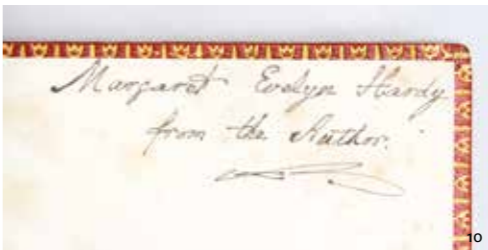 Margaret Evelyn Hardy
from the Author.
10